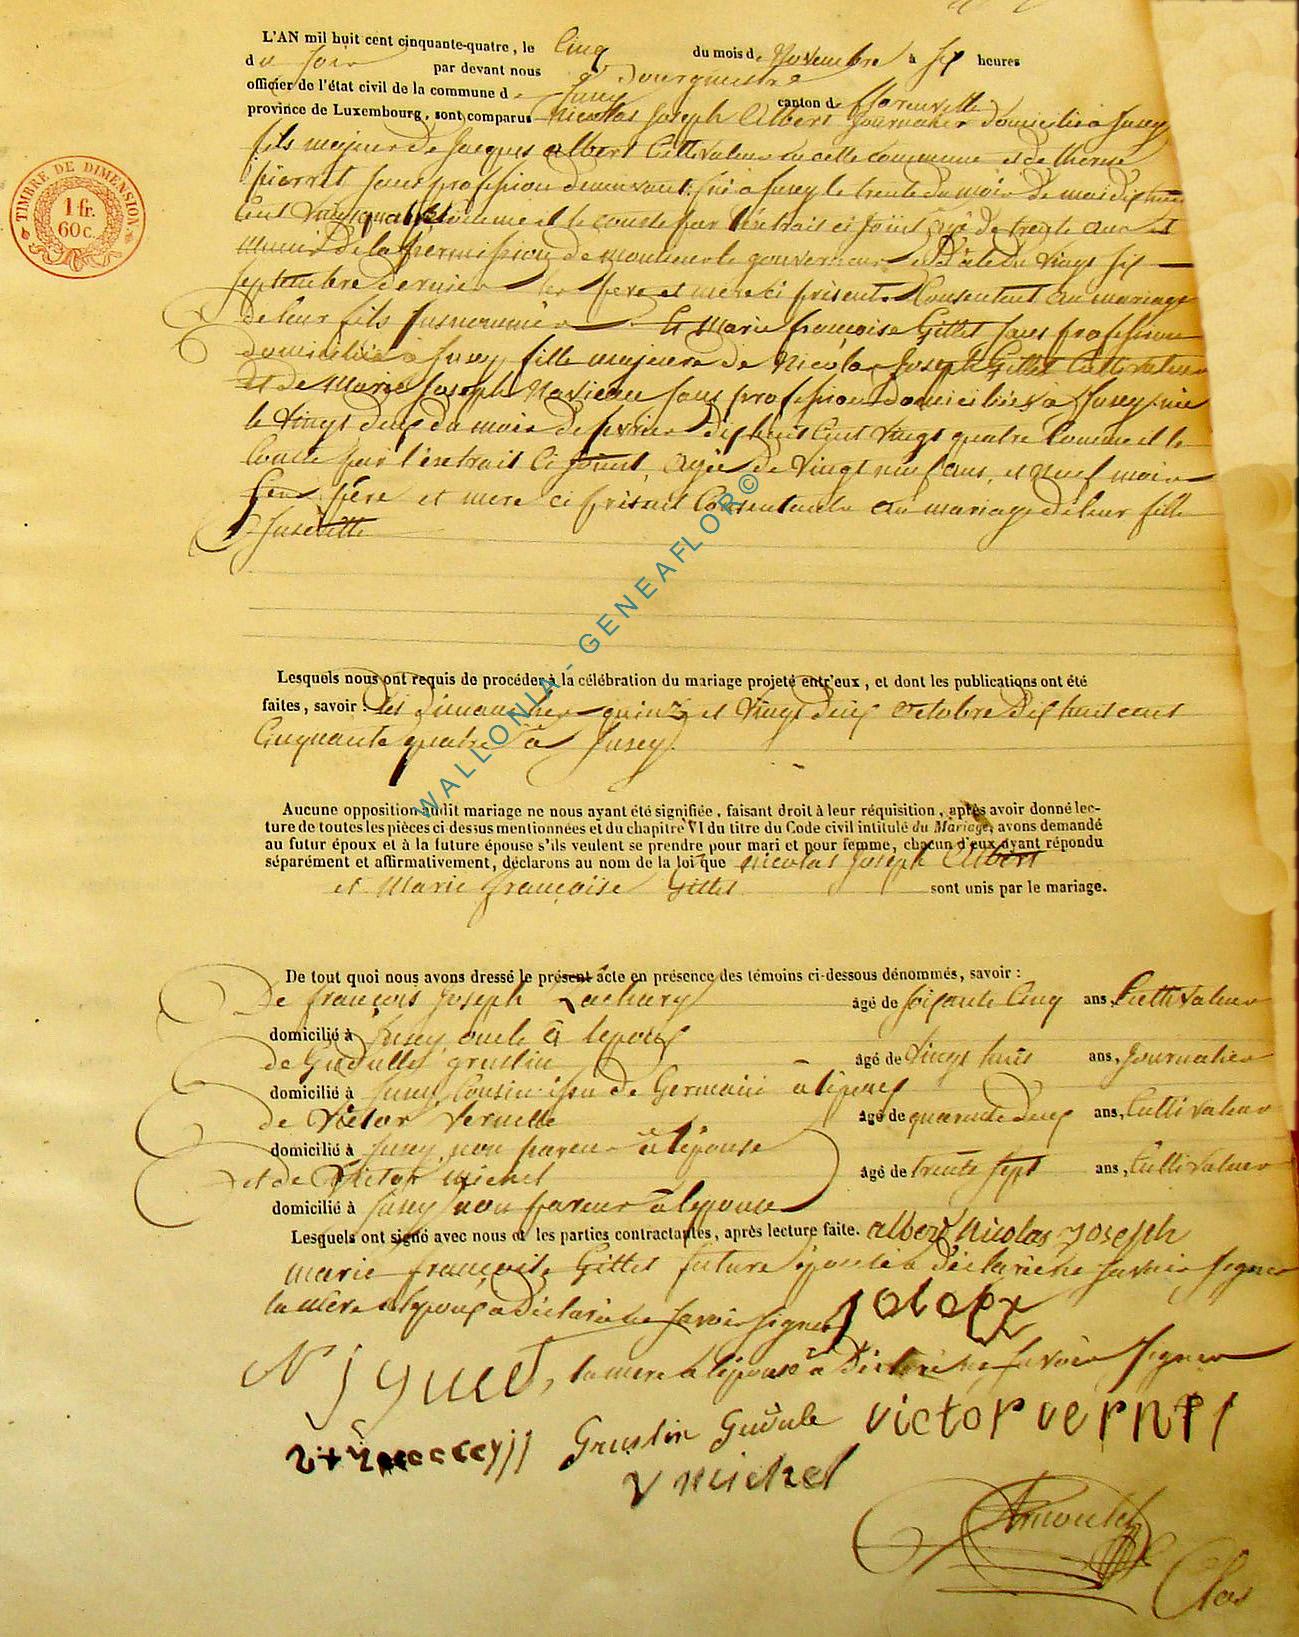 L'AN mil huit cent cinquante-quatre, le Cinq du mois de Novembre à six heures
du soir par devant nous Bourgmestre
officier de l'état civil de la commune de Jusey canton de florenville
province de Luxembourg, sont comparus Nicolas Joseph Albert Journalier domicilié à Jusey
fils majeur de Jacques albert Cultivateur en cette commune et de thérèse
pierret sans profession demeurant né à Jusey le trente du mois de mai dix huit
Cent Vingt quatre comme il le conste par l'extrait ci joint âgé de trente ans et
muni de la permission de monsieur le gouverneur en Date du Vingt six
septembre dernier les père et mère ci présents Consentent au mariage
de leur fils susnommé Et Marie françoise Gillet sans profession
domiciliée à Jusey fille majeure de Nicolas Joseph Gillet Cultivateur
et de Marie Joseph sans profession domiciliés à Jusey née
le Vingt deux du mois de février dix huit Cent Vingt quatre Comme il le
Conste par l'extrait Ci joint, agée de Vingt neuf ans, et neuf mois
père et mere ci présent Consentants au mariage de leur fille
susditte
WALLONIA - GENEAFLOR©
TIMBRE DE DIMENSION
1 fr.
60 c.
Lesquels nous ont requis de procéder à la célébration du mariage projeté entr'eux, et dont les publications ont été
faites, savoir : les dimanches quinze et Vingt deux octobre dix huit cent
Cinquante quatre à Jusey
Aucune opposition audit mariage ne nous ayant été signifiée, faisant droit à leur réquisition, après avoir donné lec-
ture de toutes les pièces ci-dessus mentionnées et du chapitre VI du titre du Code civil intitulé du Mariage, avons demandé
au futur époux et à la future épouse s'ils veulent se prendre pour mari et pour femme, chacun d'eux ayant répondu
séparément et affirmativement, déclarons au nom de la loi que Nicolas Joseph Albert
et Marie françoise Gillet sont unis par le mariage.
De tout quoi nous avons dressé le présent acte en présence des témoins ci-dessous dénommés, savoir :
De françois Joseph Zachary âgé de soixante Cinq ans, Cultivateur
domicilié à Jusey oncle à lepoux
de Gudulle gruslin âgé de Vingt huit ans, Journalier
domicilié à Jusey Cousin issu de Germain à lépoux
de Victor Vernelle âgé de quarante deux ans, Cultivateur
domicilié à Jusey non parent à lépouse
et de Victor michel âgé de trente sept ans, Cultivateur
domicilié à Jusey non parent à lepouse
Lesquels ont signé avec nous et les parties contractantes, après lecture faite. albert Nicolas joseph
marie françoise Gillet future épouse à déclaré ne savoir signer
la mère a lepoux a déclaré ne savoir signer
la mere a lépouse a Déclaré ne savoir signer
Gruslin Gudule victor
v michel